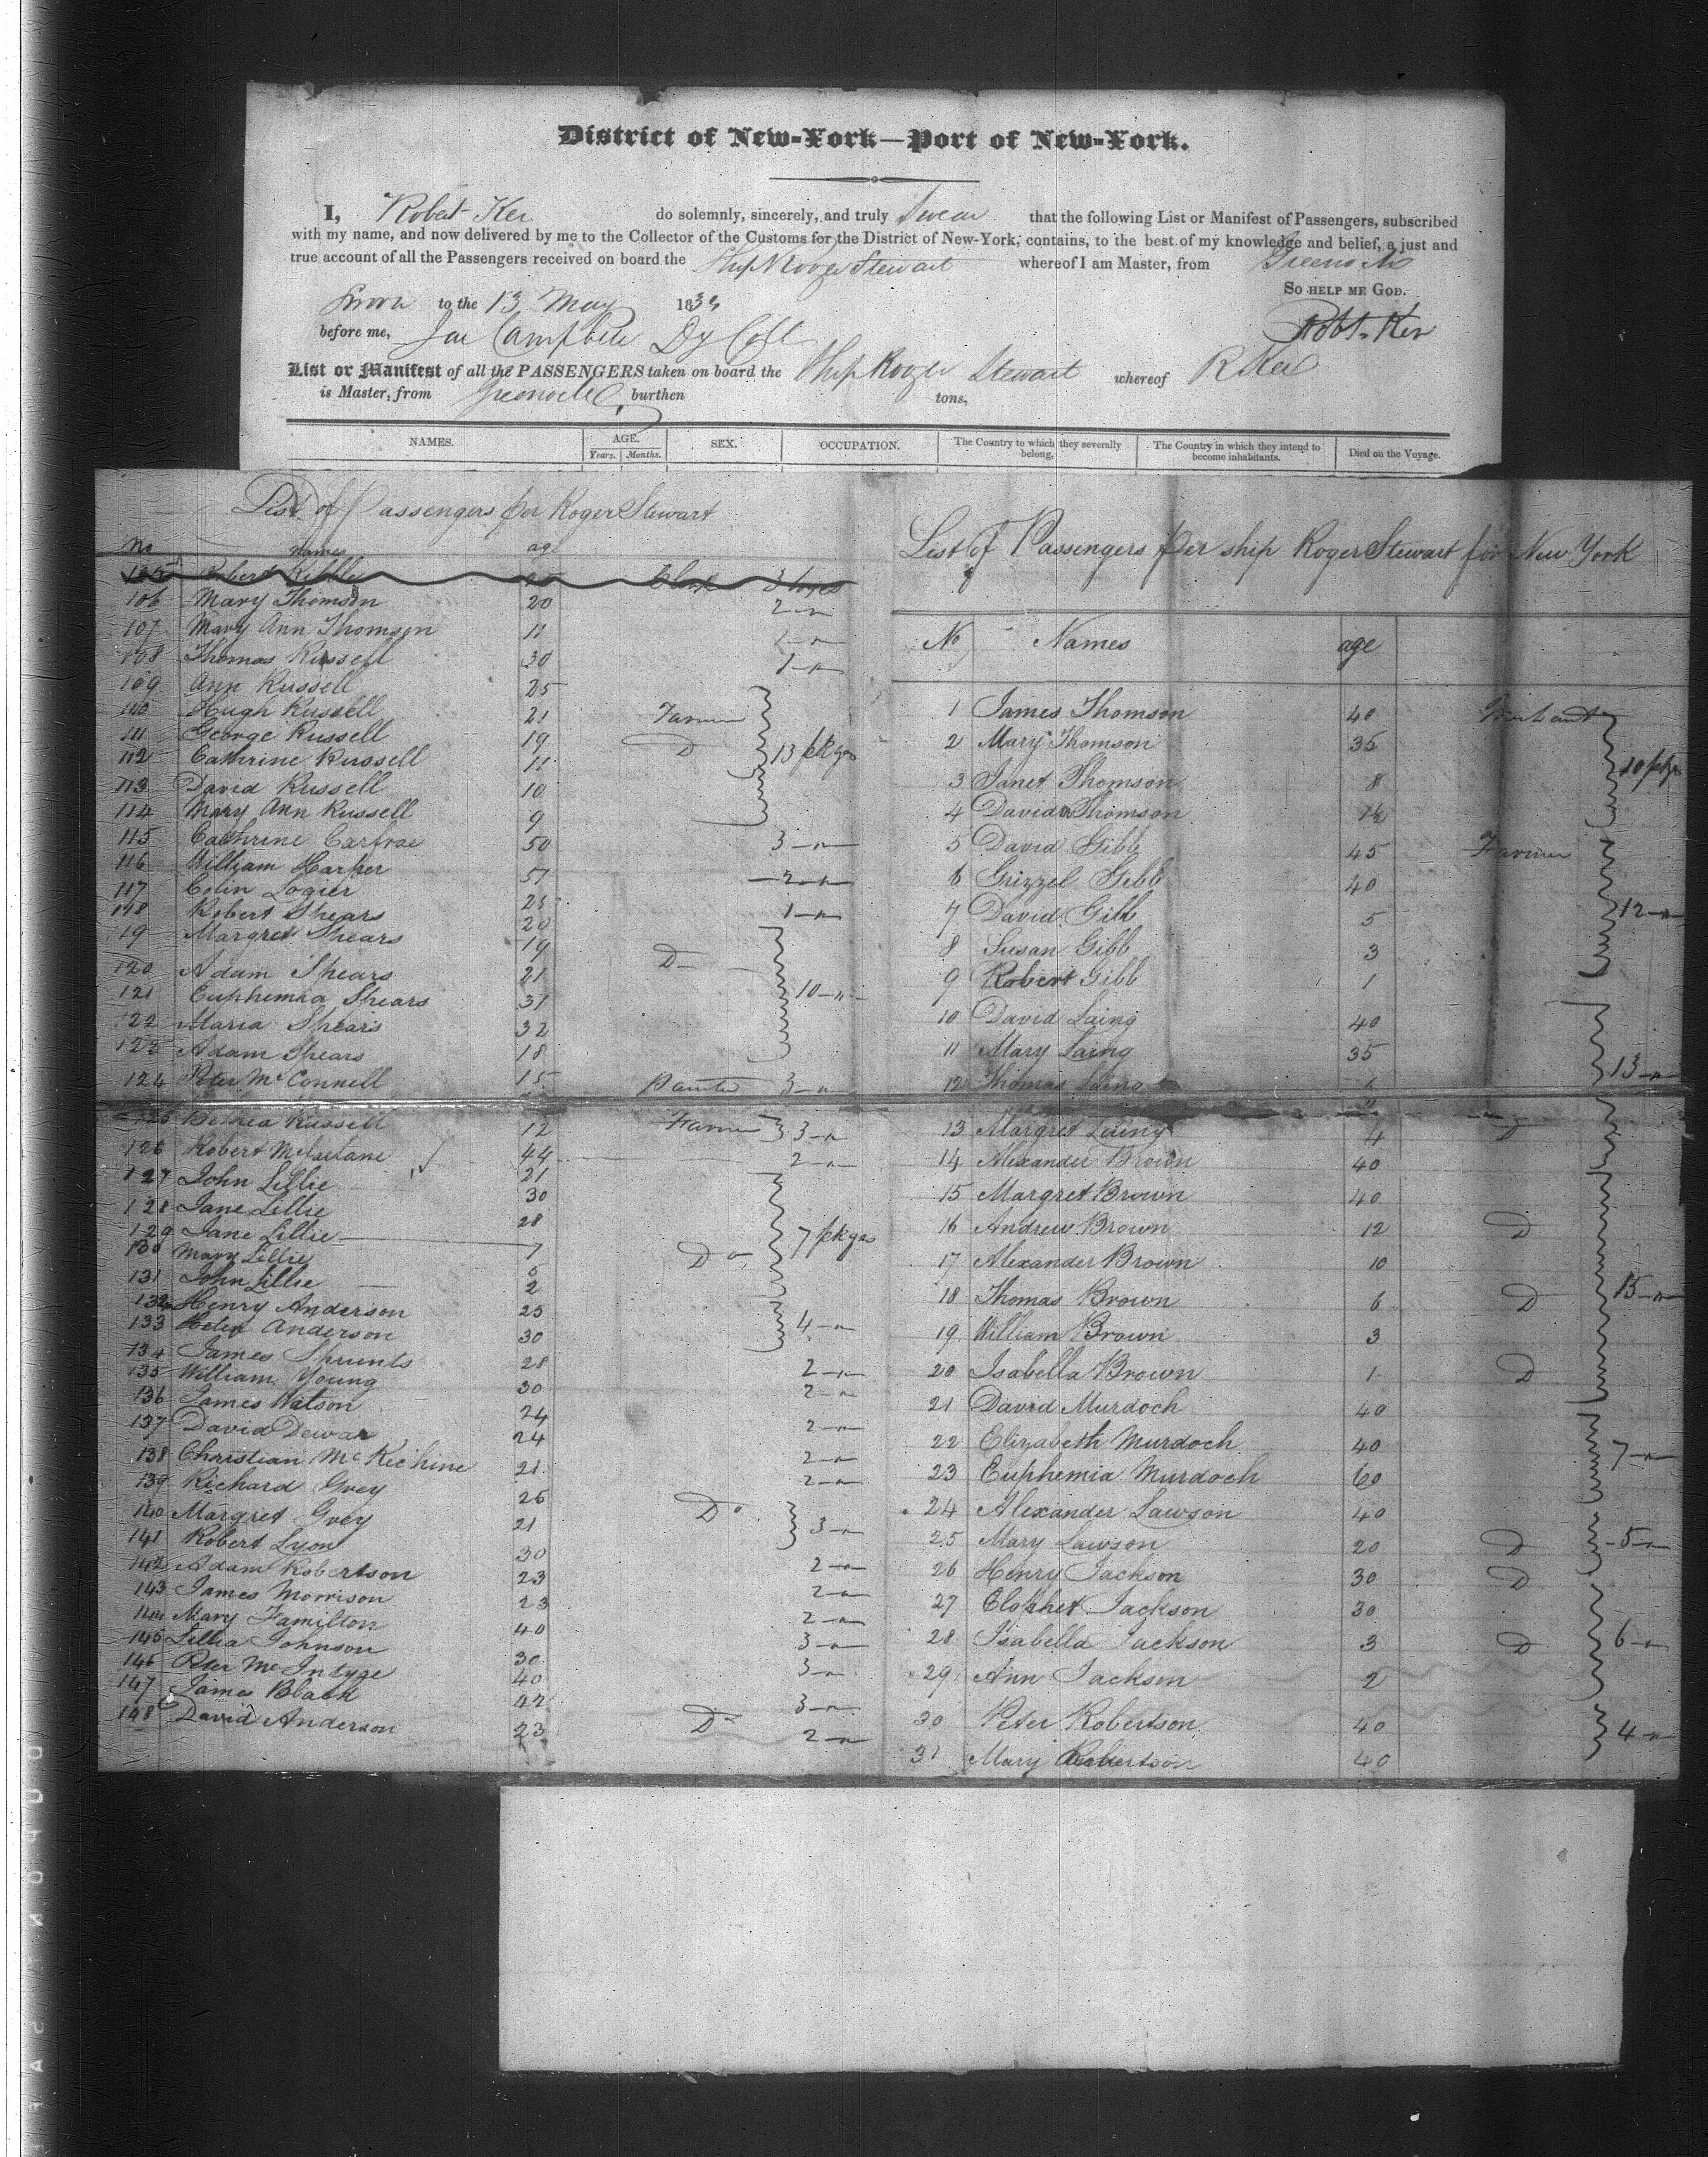 District of New-York—Port of New-York.
I, Robert Ker do solemnly, sincerely, and truly Swear that the following List or Manifest of Passengers, subscribed
with my name, and now delivered by me to the Collector of the Customs for the District of New-York, contains, to the best of my knowledge and belief, a just and
true account of all the Passengers received on board the Ship Roger Stewart whereof I am Master, from Greenock
So HELP ME GOD.
Sworn to the 13 May 183
before me, Campbell Dy Coll Robt. Ker
List or Manifest of all the PASSENGERS taken on board the Ship Roger Stewart whereof R Ker
is Master, from Greenock burthen tons,
NAMES. AGE. SEX. OCCUPATION. The Country to which they severally belong. The Country in which they intend to become inhabitants. Died on the Voyage.
Years. Months.
List of Passengers per Roger Stewart
No names age
Robert Clerk 3 boxes
106 Mary Thomson 20 2 - "
107 Mary Ann Thomson 11
108 Thomas Russell 30 1 - "
109 Ann Russell 25
110 Hugh Russell 21 Farmer
111 George Russell 19 D 13 pkgs
112 Cathrine Russell 11
113 David Russell 10
114 Mary Ann Russell 9
115 Cathrine Carfrae 50 3 - "
116 William Harper 57 2 - "
117 Colin Logier 23 1 - "
118 Robert Shears 20
119 Margret Shears 19 D
120 Adam Spears 21
121 Euphemia Spears 31 10 - "
122 Maria Spears 32
123 Adam Spears 18
124 Peter McConnell 15 Painter 3 - "
125 Russell 12 Farmer 3 - "
126 Robert McFarlane 44 2 - "
127 John Lillie 21
128 Jane Lillie 30
129 Jane Lillie 28 7 pkgs
130 Mary Lillie 7 Do
131 John Lillie 5
2
132 Henry Anderson 25 4 - "
133 Helen Anderson 30
134 James Shrunts 28 2 - "
135 William Young 30 2 - "
136 James Watson 24 2 - "
137 David Dewar 24 2 - "
138 Christian McKichine 21 2 - "
139 Richard Grey 25 Do
140 Margret Grey 21 3 - "
141 Robert Lyon 30 2 - "
142 Adam Robertson 23 2 - "
143 James Morrison 23 2 - "
144 Mary Hamilton 40 3 - "
145 Lillia Johnson 30 3 - "
146 Peter McIntyre 40
147 James Black 42 3 - "
148 David Anderson 23 Do 2 - "
List of Passengers per ship Roger Stewart for New York
No Names age
1 James Thomson 40
2 Mary Thomson 35
3 Janet Thomson 8 10 pkgs
4 David Thomson 1½
5 David Gibb 45 Farmer
6 Grizzel Gibb 40
7 David Gibb 5 12 - "
8 Susan Gibb 3
9 Robert Gibb 1
10 David Laing 40
11 Mary Laing 35
12 Thomas Laing 6 13 - "
13 Margret Laing 4 D
14 Alexander Brown 40
15 Margret Brown 40
16 Andrew Brown 12 D
17 Alexander Brown 10
18 Thomas Brown 6 D 15 - "
19 William Brown 3
20 Isabella Brown 1 D
21 David Murdoch 40
22 Elizabeth Murdoch 40
23 Euphemia Murdoch 60 7 - "
24 Alexander Lawson 40
25 Mary Lawson 20 D 5 - "
26 Henry Jackson 30 D
27 Elophet Jackson 30
28 Isabella Jackson 3 D 6 - "
29 Ann Jackson 2
30 Peter Robertson 40 4 - "
31 Mary Robertson 40